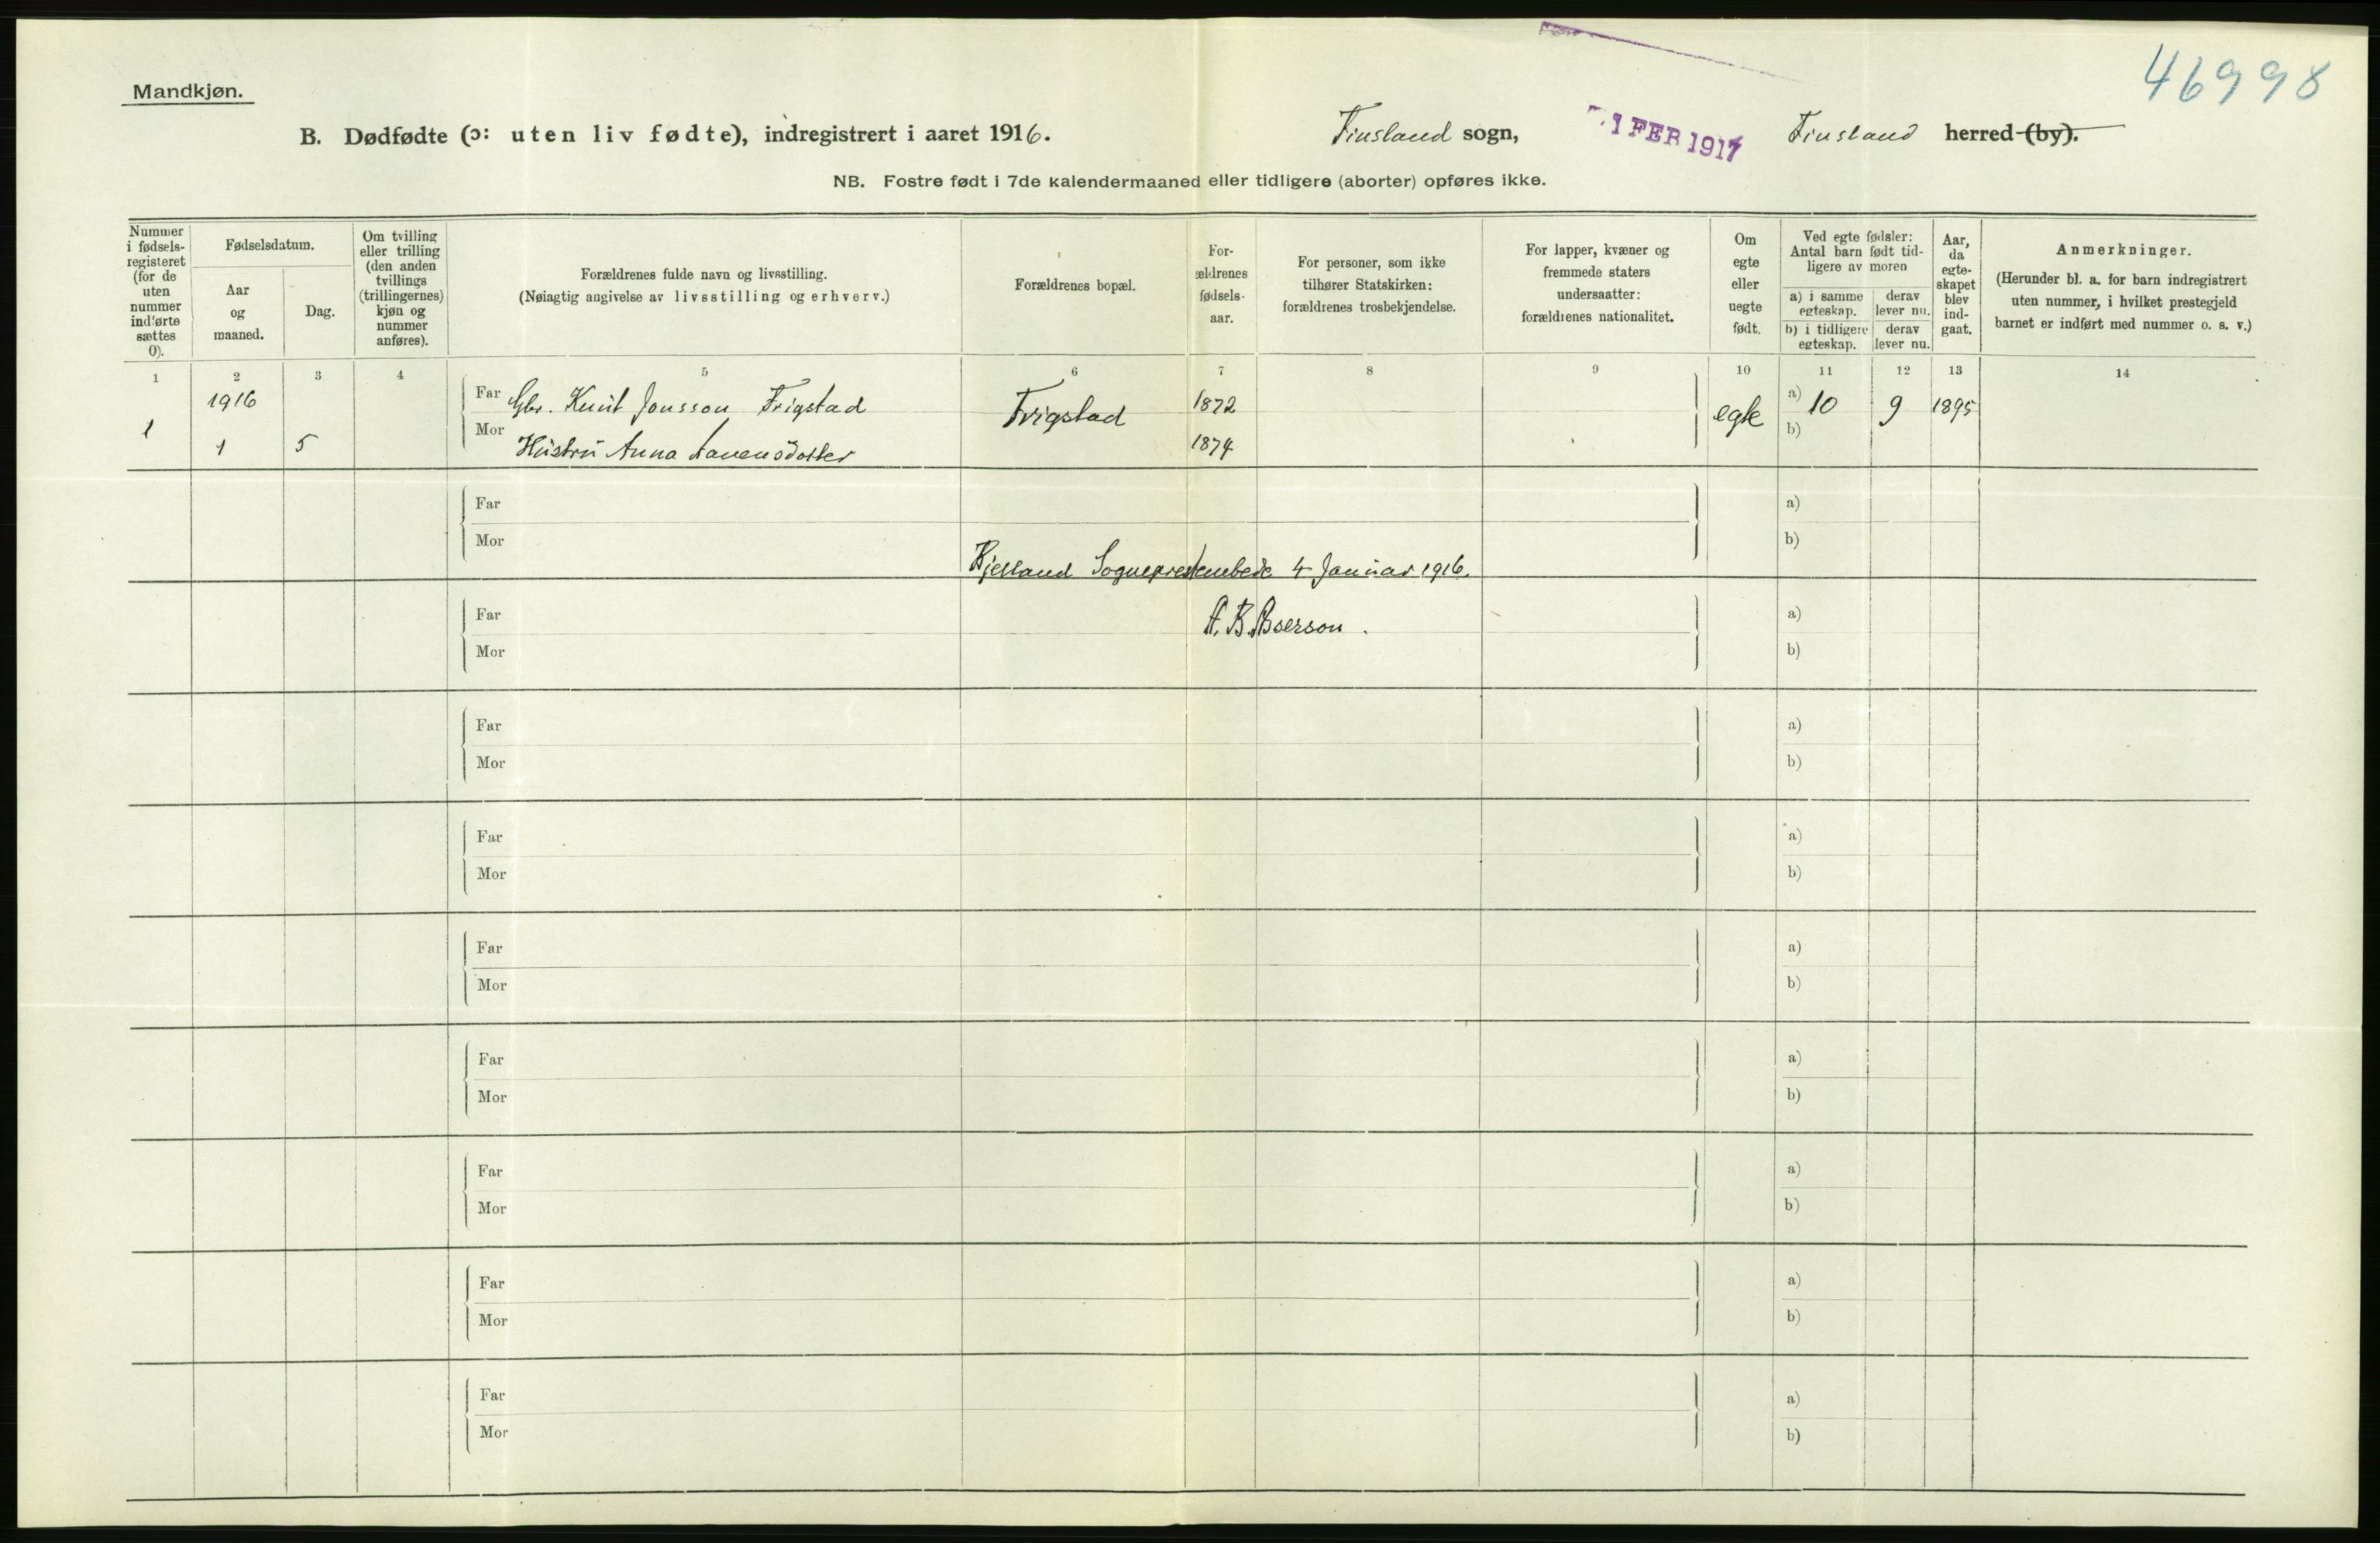 46998
Mandkjøn.
B. Dødfødte (ɔ: uten liv fødte), indregistrert i aaret 1916.
Finsland sogn,
1 FEB 1917
Finsland herred (by).
NB. Fostre født i 7de kalendermaaned eller tidligere (aborter) opføres ikke.
Nummer i fødsels-registeret (for de uten nummer indførte sættes 0).
Fødselsdatum.
Aar og maaned.
Dag.
Om tvilling eller trilling (den anden tvillings (trillingernes) kjøn og nummer anføres).
Forældrenes fulde navn og livsstilling.
(Nøiagtig angivelse av livsstilling og erhverv.)
Forældrenes bopæl.
For-ældrenes fødsels-aar.
For personer, som ikke tilhører Statskirken: forældrenes trosbekjendelse.
For lapper, kvæner og fremmede staters undersaatter: forældrenes nationalitet.
Om egte eller uegte født.
Ved egte fødsler: Antal barn født tid-ligere av moren
a) i samme egteskap.
derav lever nu.
b) i tidligere egteskap.
derav lever nu.
Aar, da egte-skapet blev ind-gaat.
Anmerkninger.
(Herunder bl. a. for barn indregistrert uten nummer, i hvilket prestegjeld barnet er indført med nummer o. s. v.)
1 2 3 4 5 6 7 8 9 10 11 12 13 14
1 1916 1 5
Far Gbr. Knut Jonsson Frigstad
Mor Hustru Anna Aanensdotter
Frigstad
1872
1874
egte
a) 10 9 1895
b)
Far a)
Mor b)
Bjelland Sogneprestembede 4 Januar 1916.
A. B.
Far a)
Mor b)
Far a)
Mor b)
Far a)
Mor b)
Far a)
Mor b)
Far a)
Mor b)
Far a)
Mor b)
Far a)
Mor b)
Far a)
Mor b)